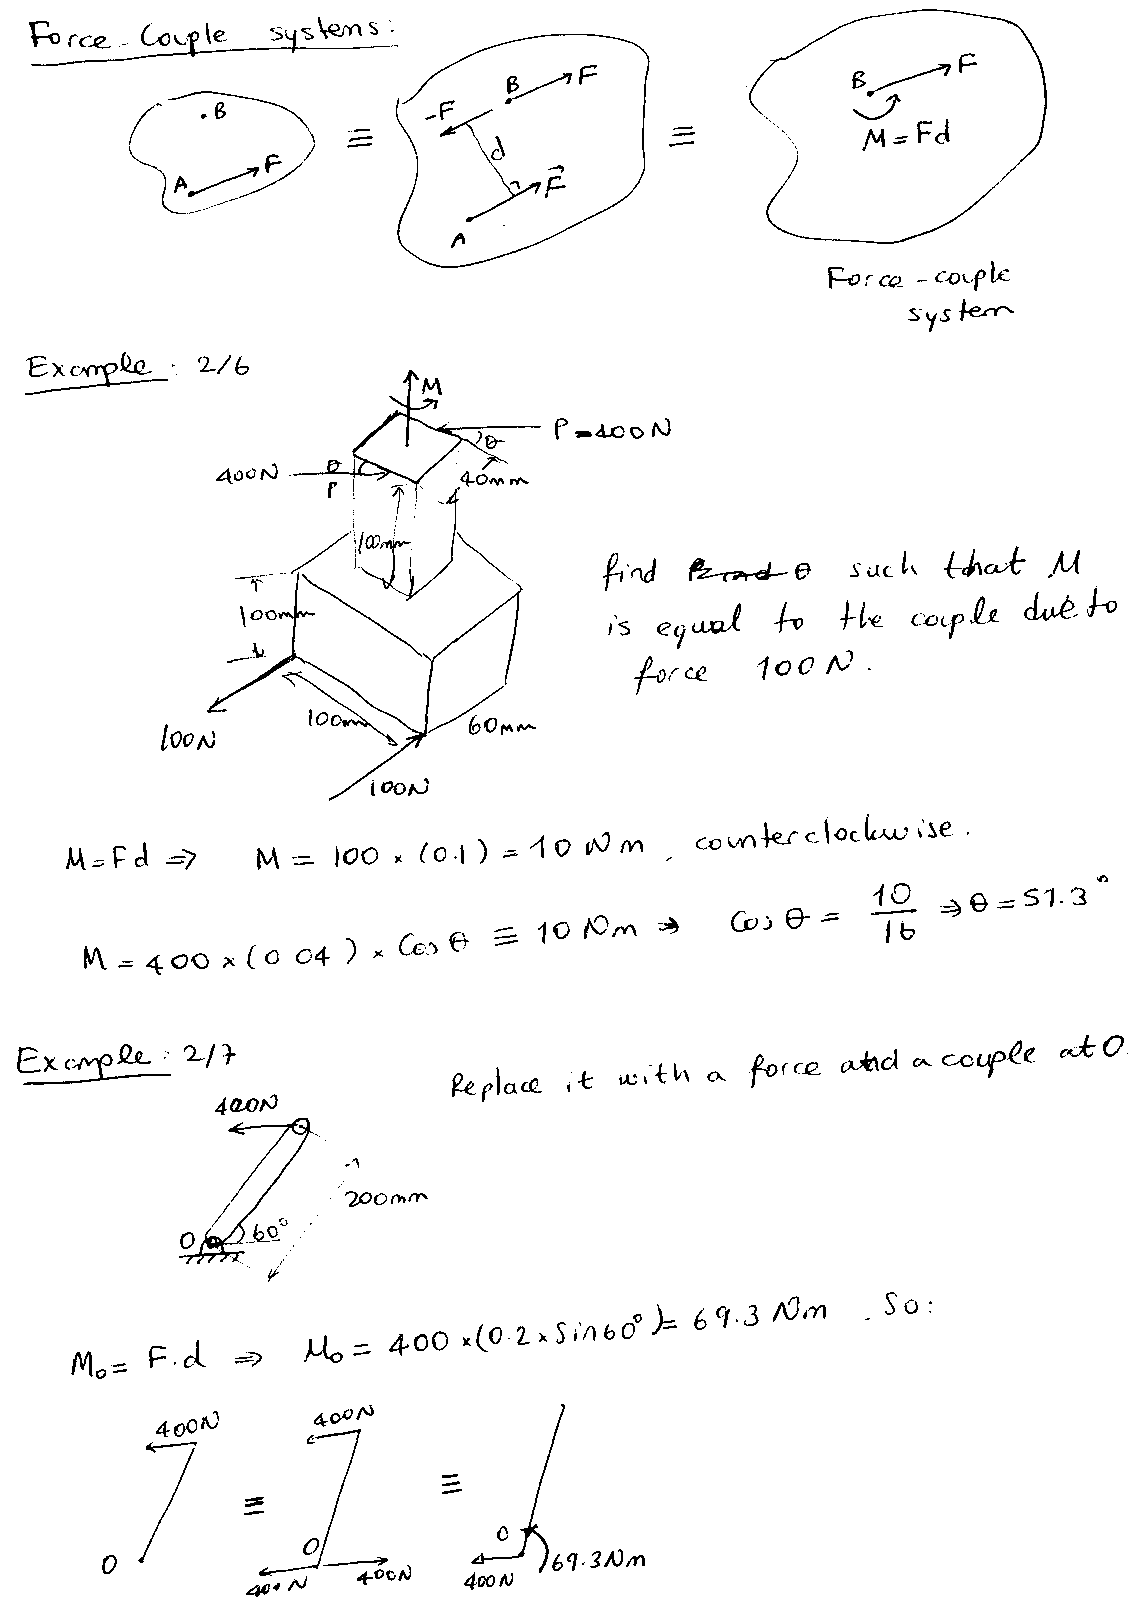 Force-Couple systems:
.B
A F
≡
-F B F
d
F
A
≡
B F
M=Fd
Force-couple
system
Example: 2/6
M
P=400N
θ
400N θ
P
40mm
100mm
100mm
100mm
60mm
100N
100N
find θ such that M
is equal to the couple due to
force 100N.
M=Fd ⇒ M = 100 × (0.1) = 10 Nm, counterclockwise.
M = 400 × (0.04) × Cos θ ≡ 10 Nm ⇒ Cos θ = 10/16 ⇒ θ = 51.3°
Example: 2/7
Replace it with a force and a couple at O.
400N
200mm
O 60°
Mo = F.d ⇒ Mo = 400 × (0.2 × Sin60°) = 69.3 Nm. So:
400N 400N
≡ ≡
O O O
400N 400N 400N 69.3Nm